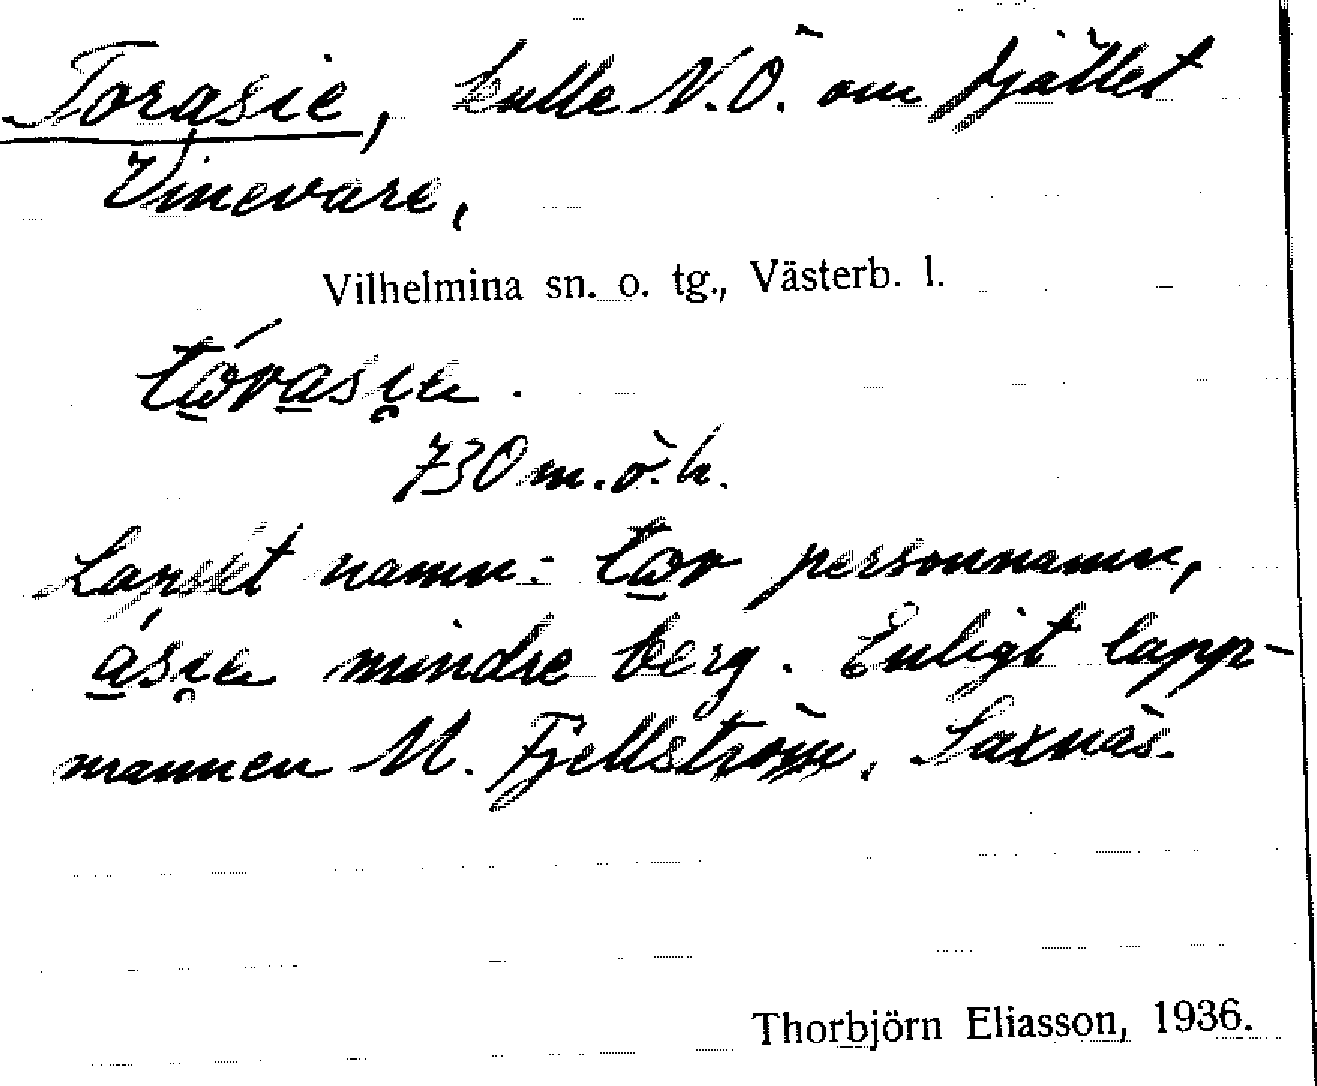 Torasie, kulle N.Ö. om fjället
Vinevare,
Vilhelmina sn. o. tg., Västerb. l.
tώ̲ra̲si̮e.
730 m.ö.h.
Lapskt namn: tω̲r personnamn,
á̲si̮e mindre berg. Enligt lapp-
mannen M. Fjellström, Saxnäs.
Thorbjörn Eliasson, 1936.